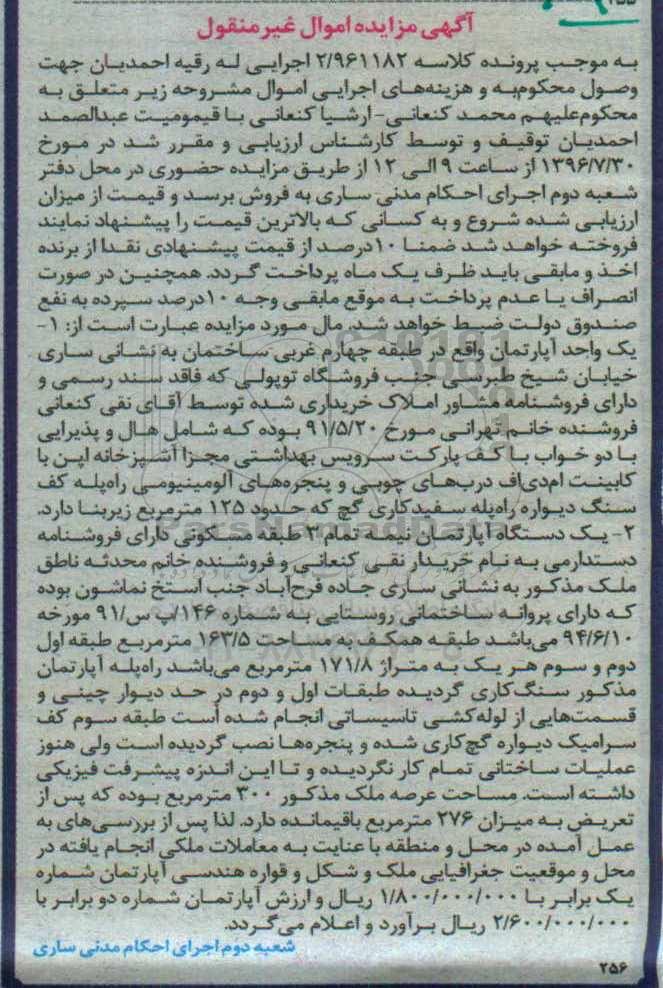 ۲۵۵
آگهی مزایده اموال غیر منقول
به موجب پرونده کلاسه ۲/۹۶۱۱۸۲ اجرایی له رقیه احمدیان جهت
وصول محکوم‌به و هزینه‌های اجرایی اموال مشروحه زیر متعلق به
محکوم‌علیهم محمد کنعانی- ارشیا کنعانی با قیمومیت عبدالصمد
احمدیان توقیف و توسط کارشناس ارزیابی و مقرر شد در مورخ
۱۳۹۶/۷/۳۰ از ساعت ۹ الی ۱۲ از طریق مزایده حضوری در محل دفتر
شعبه دوم اجرای احکام مدنی ساری به فروش برسد و قیمت از میزان
ارزیابی شده شروع و به کسانی که بالاترین قیمت را پیشنهاد نمایند
فروخته خواهد شد ضمنا ۱۰درصد از قیمت پیشنهادی نقدا از برنده
اخذ و مابقی باید ظرف یک ماه پرداخت گردد. همچنین در صورت
انصراف یا عدم پرداخت به موقع مابقی وجه ۱۰درصد سپرده به نفع
صندوق دولت ضبط خواهد شد. مال مورد مزایده عبارت است از: ۱-
یک واحد آپارتمان واقع در طبقه چهارم غربی ساختمان به نشانی ساری
خیابان شیخ طبرسی جنب فروشگاه توپولی که فاقد سند رسمی و
دارای فروشنامه مشاور املاک خریداری شده توسط آقای نقی کنعانی
فروشنده خانم تهرانی مورخ ۹۱/۵/۲۰ بوده که شامل هال و پذیرایی
با دو خواب با کف پارکت سرویس بهداشتی مجزا آشپزخانه اپن با
کابینت ام‌دی‌اف درب‌های چوبی و پنجره‌های آلومینیومی راه‌پله کف
سنگ دیواره راه‌پله سفیدکاری گچ که حدود ۱۲۵ مترمربع زیربنا دارد.
۲- یک دستگاه آپارتمان نیمه تمام ۳ طبقه مسکونی دارای فروشنامه
دستدارمی به نام خریدار نقی کنعانی و فروشنده خانم محدثه ناطق
ملک مذکور به نشانی ساری جاده فرح‌آباد جنب استخ نماشون بوده
که دارای پروانه ساختمانی روستایی به شماره ۱۴۶/پ س/۹۱ مورخه
۹۴/۶/۱۰ می‌باشد طبقه همکف به مساحت ۱۶۳/۵ مترمربع طبقه اول
دوم و سوم هر یک به متراژ ۱۷۱/۸ مترمربع می‌باشد راه‌پله آپارتمان
مذکور سنگ‌کاری گردیده طبقات اول و دوم در حد دیوار چینی و
قسمت‌هایی از لوله‌کشی تاسیساتی انجام شده است طبقه سوم کف
سرامیک دیواره گچ‌کاری شده و پنجره‌ها نصب گردیده است ولی هنوز
عملیات ساختانی تمام کار نگردیده و تا این اندزه پیشرفت فیزیکی
داشته است. مساحت عرصه ملک مذکور ۳۰۰ مترمربع بوده که پس از
تعریض به میزان ۲۷۶ مترمربع باقیمانده دارد. لذا پس از بررسی‌های به
عمل آمده در محل و منطقه با عنایت به معاملات ملکی انجام یافته در
محل و موقعیت جغرافیایی ملک و شکل و قواره هندسی آپارتمان شماره
یک برابر با ۱/۸۰۰/۰۰۰/۰۰۰ ریال و ارزش آپارتمان شماره دو برابر با
۲/۶۰۰/۰۰۰/۰۰۰ ریال برآورد و اعلام می‌گردد.
شعبه دوم اجرای احکام مدنی ساری
۲۵۶